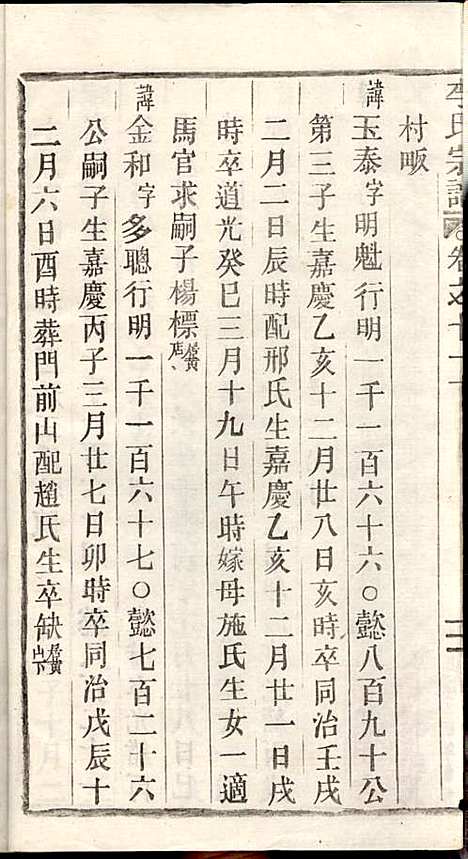 李氏宗譜
村畈
諱玉泰字明魁行明一千一百六十六○懿八百九十公
第三子生嘉慶乙亥十二月廿八日亥時卒同治壬戌
二月二日辰時配邢氏生嘉慶乙亥十二月廿一日戌
時卒道光癸巳三月十九日午時嫁母施氏生女一適
馬官求嗣子楊標
諱金和字多聰行明一千一百六十七○懿七百二十六
公嗣子生嘉慶丙子三月廿七日卯時卒同治戊辰十
二月六日酉時葬門前山配趙氏生卒缺